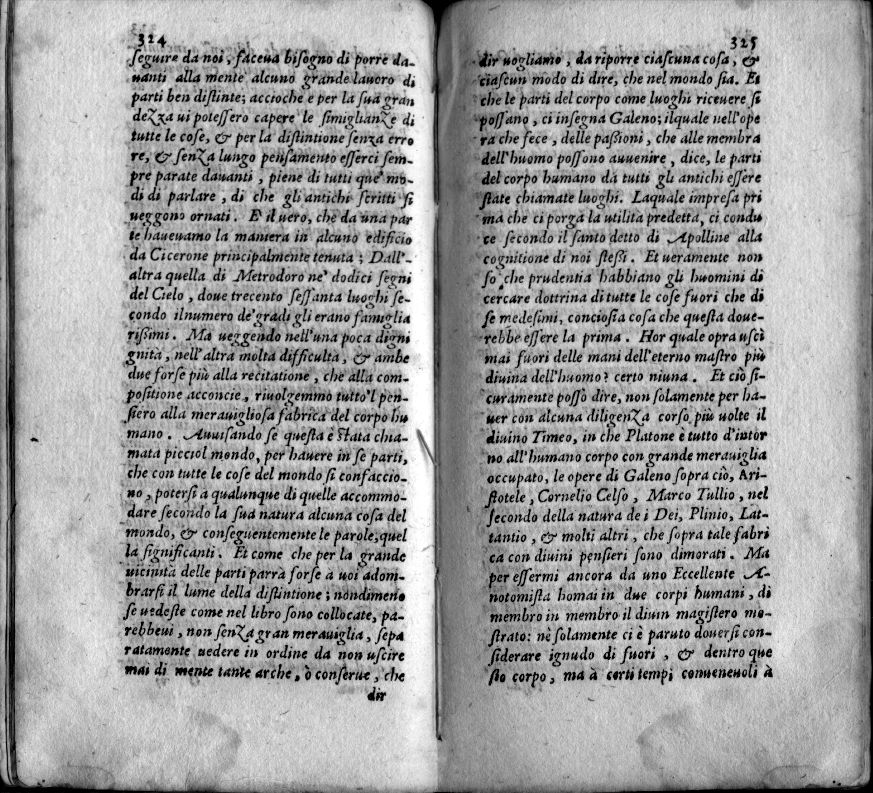 324
ſeguire da noi, faceua biſogno di porre da-
uanti alla mente alcuno grande lauoro di
parti ben diſtinte; accioche e per la ſua gran
deZZa ui poteſſero capere le ſimiglianZe di
tutte le coſe, & per la diſtintione ſenza erro
re, & ſenZa lungo penſamento eſſerci ſem-
pre parate dauanti, piene di tutti que' mo-
di di parlare, di che gli antichi ſcritti ſi
ueggono ornati. E' il uero, che da una par
te haueuamo la maniera in alcuno edificio
da Cicerone principalmente tenuta; Dall'-
altra quella di Metrodoro ne' dodici ſegni
del Cielo, doue trecento ſeſſanta luoghi ſe-
condo ilnumero de' gradi gli erano famiglia
riſſimi. Ma ueggendo nell'una poca digni
gnità, nell'altra molta difficulta, & ambe
due forſe più alla recitatione, che alla com-
poſitione acconcie, riuolgemmo tutto'l pen-
ſiero alla merauiglioſa fabrica del corpo hu
mano. Auuiſando ſe queſta è ſtata chia-
mata picciol mondo, per hauere in ſe parti,
che con tutte le coſe del mondo ſi confaccio-
no, poterſi a qualunque di quelle accommo-
dare ſecondo la ſua natura alcuna coſa del
mondo, & conſeguentemente le parole, quel
la ſignificanti. Et come che per la grande
uicinità delle parti parra forſe a uoi adom-
brarſi il lume della diſtintione; nondimeno
ſe uedeſte come nel libro ſono collocate, pa-
rebbeui, non ſenZa gran merauiglia, ſepa
ratamente uedere in ordine da non uſcire
mai di mente tante arche, ò conſerue, che
dir
325
dir uogliamo, da riporre ciaſcuna coſa, &
ciaſcun modo di dire, che nel mondo ſia. Et
che le parti del corpo come luoghi riceuere ſi
poſſano, ci inſegna Galeno; ilquale nell'ope
ra che fece, delle paſſioni, che alle membra
dell'huomo poſſono auuenire, dice, le parti
del corpo humano da tutti gli antichi eſſere
ſtate chiamate luoghi. Laquale impreſa pri
ma che ci porga la utilita predetta, ci condu
ce ſecondo il ſanto detto di Apolline alla
cognitione di noi ſteſſi. Et ueramente non
ſo che prudentia habbiano gli huomini di
cercare dottrina di tutte le coſe fuori che di
ſe medeſimi, concioſia coſa che queſta doue-
rebbe eſſere la prima. Hor quale opra uſcì
mai fuori delle mani dell'eterno maſtro più
diuina dell'huomo? certo niuna. Et ciò ſi-
curamente poſſo dire, non ſolamente per ha-
uer con alcuna diligenZa corſo più uolte il
diuino Timeo, in che Platone è tutto d'intor
no all'humano corpo con grande merauiglia
occupato, le opere di Galeno ſopra ciò, Ari-
ſtotele, Cornelio Celſo, Marco Tullio, nel
ſecondo della natura de i Dei, Plinio, Lat-
tantio, & molti altri, che ſopra tale fabri
ca con diuini penſieri ſono dimorati. Ma
per eſſermi ancora da uno Eccellente A-
notomiſta homai in due corpi humani, di
membro in membro il diuin magiſtero mo-
ſtrato: nè ſolamente ci è paruto douerſi con-
ſiderare ignudo di fuori, & dentro que
ſto corpo, ma à certi tempi conueneuoli à